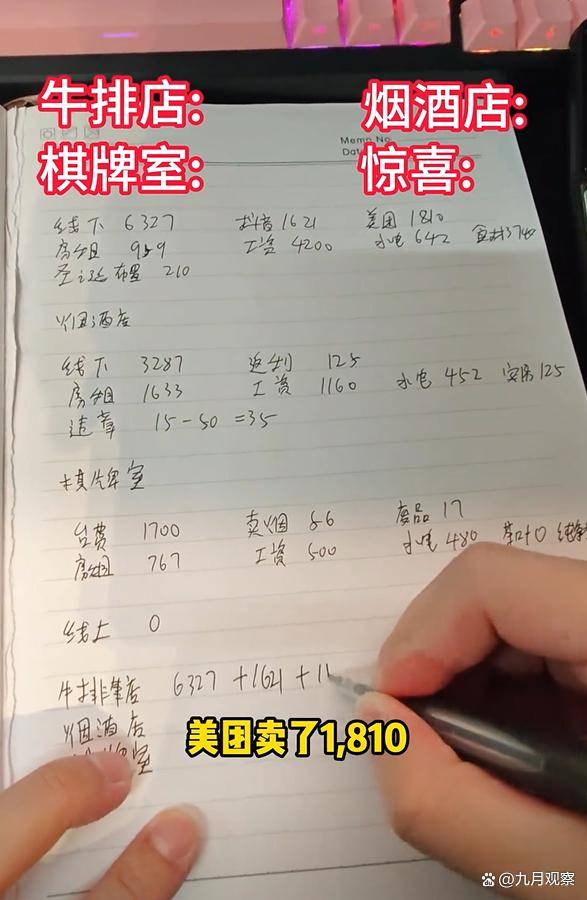 牛排店: 烟酒店:
棋牌室: 惊喜:
Memo No.
Dat
线下 6327 抖音1621 美团 1810
房租 959 工资 4200 水电 642 食材3740
圣诞布置 210
烟酒店
线下 3287 返利 125
房租 1633 工资 1160 水电 452 125
违章 15-50 =35
棋牌室
台费 1700 卖烟 86 废品 17
房租 767 工资 500 水电 480 茶叶0
线上 0
牛排店 6327 +1621 +1
烟酒店
室
美团卖了1,810
@九月观察